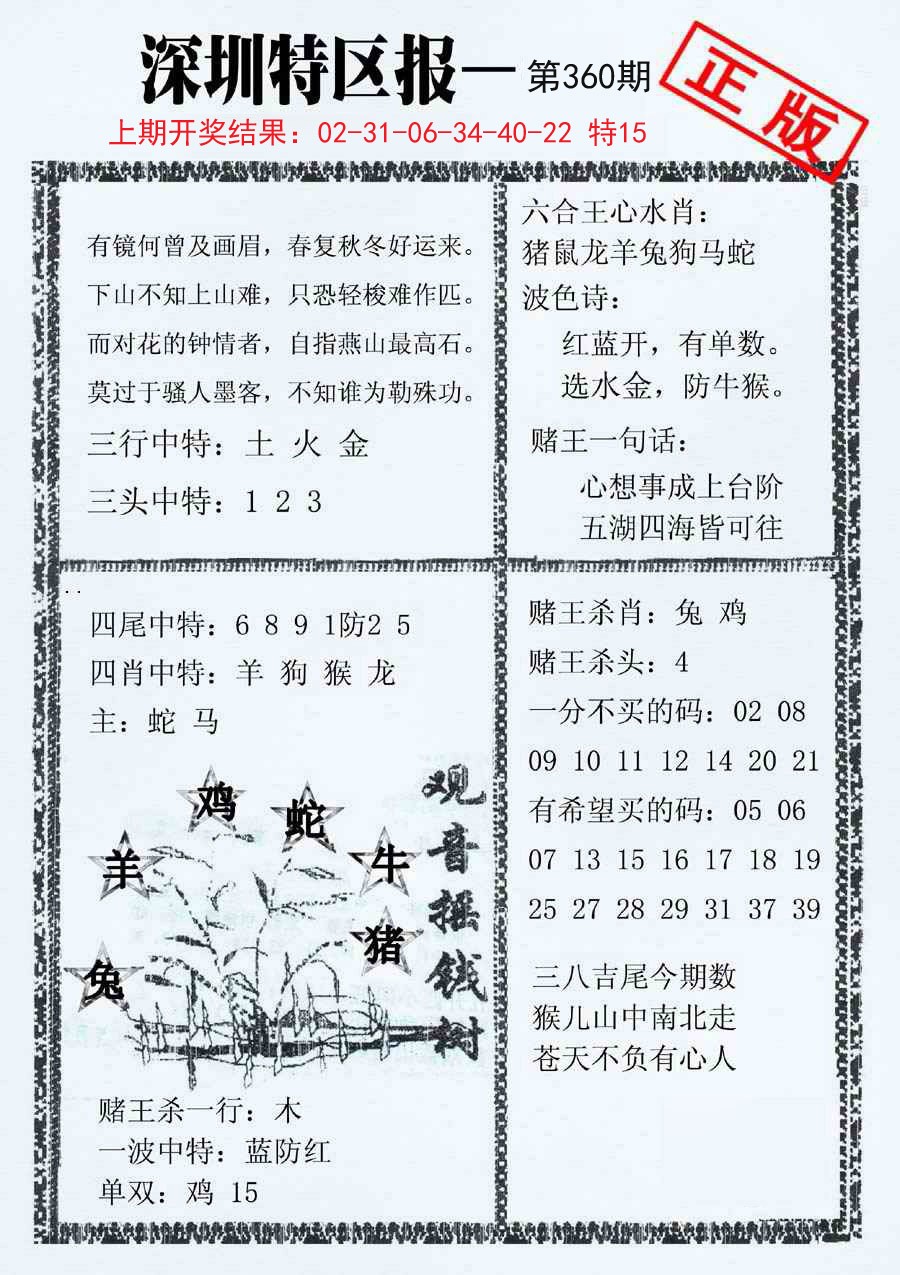 深圳特区报—第360期
正版
上期开奖结果：02-31-06-34-40-22 特15
有镜何曾及画眉，春复秋冬好运来。
下山不知上山难，只恐轻梭难作匹。
而对花的钟情者，自指燕山最高石。
莫过于骚人墨客，不知谁为勒殊功。
三行中特：土 火 金
三头中特：1 2 3
六合王心水肖：
猪鼠龙羊兔狗马蛇
波色诗：
红蓝开，有单数。
选水金，防牛猴。
赌王一句话：
心想事成上台阶
五湖四海皆可往
四尾中特：6 8 9 1防2 5
四肖中特：羊 狗 猴 龙
主：蛇 马
鸡
蛇
羊
牛
猪
兔
观音摇钱树
赌王杀一行：木
一波中特：蓝防红
单双：鸡 15
赌王杀肖：兔 鸡
赌王杀头：4
一分不买的码：02 08
09 10 11 12 14 20 21
有希望买的码：05 06
07 13 15 16 17 18 19
25 27 28 29 31 37 39
三八吉尾今期数
猴儿山中南北走
苍天不负有心人